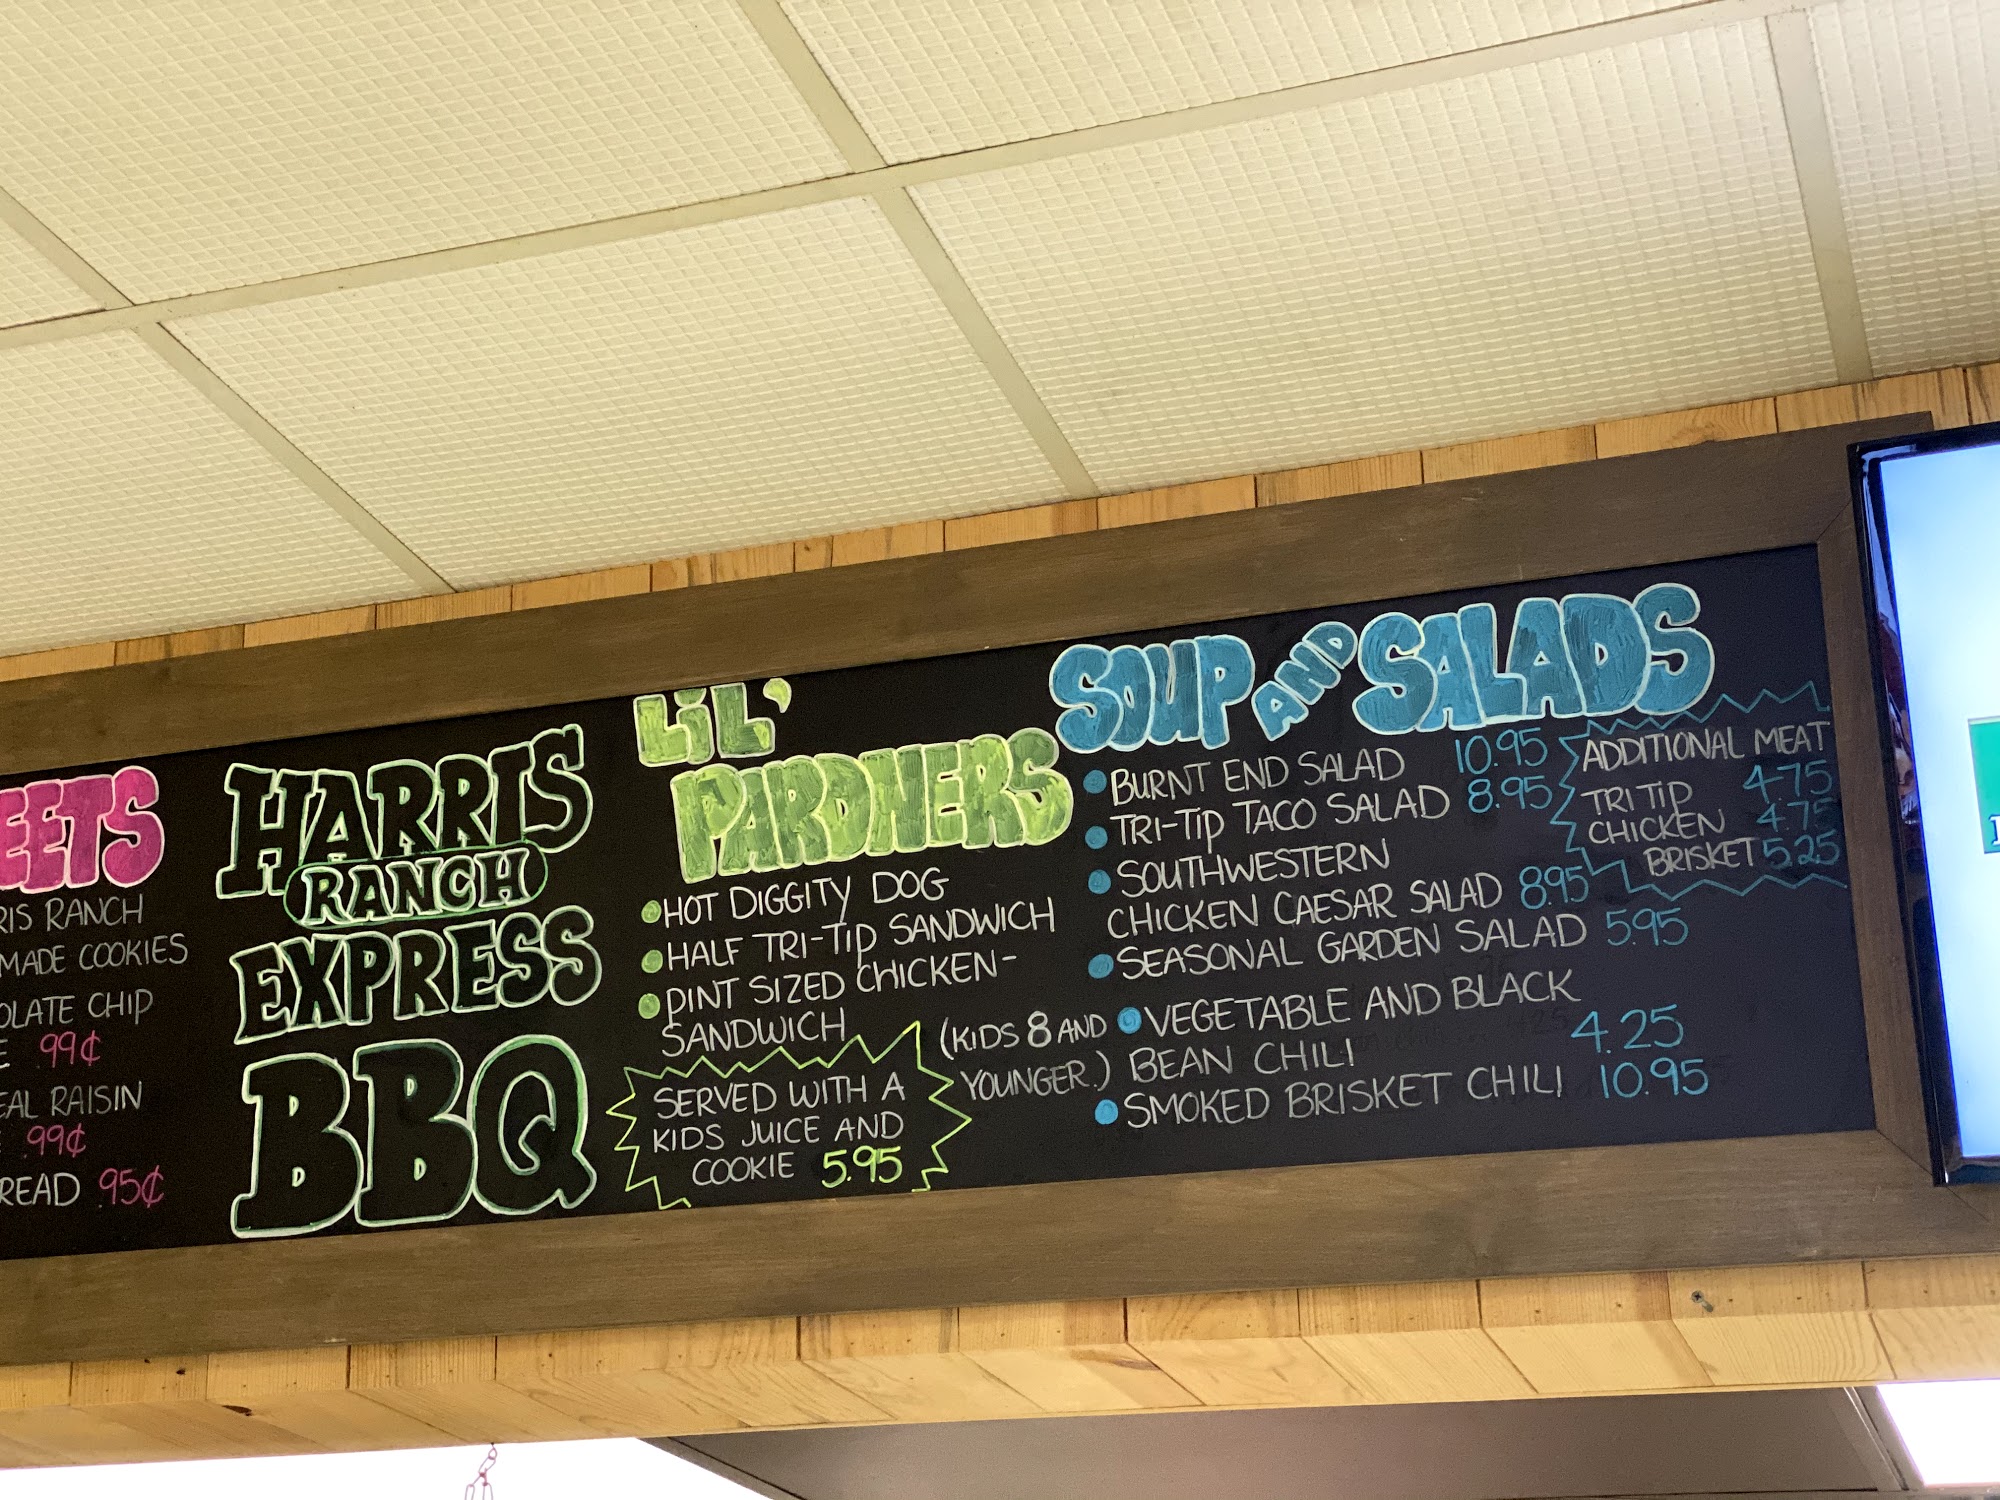 EETS
RIS RANCH
MADE COOKIES
OLATE CHIP
E .99¢
EAL RAISIN
.99¢
READ .95¢
HARRIS
RANCH
EXPRESS
BBQ
LiL'
PARDNERS
HOT DIGGITY DOG
HALF TRI-TIP SANDWICH
PINT SIZED CHICKEN-
SANDWICH
(KIDS 8 AND
YOUNGER.)
SERVED WITH A
KIDS JUICE AND
COOKIE 5.95
SOUP AND SALADS
BURNT END SALAD 10.95
TRI-TIP TACO SALAD 8.95
SOUTHWESTERN
CHICKEN CAESAR SALAD 8.95
SEASONAL GARDEN SALAD 5.95
VEGETABLE AND BLACK
BEAN CHILI 4.25
SMOKED BRISKET CHILI 10.95
ADDITIONAL MEAT
TRI TIP 4.75
CHICKEN 4.75
BRISKET 5.25